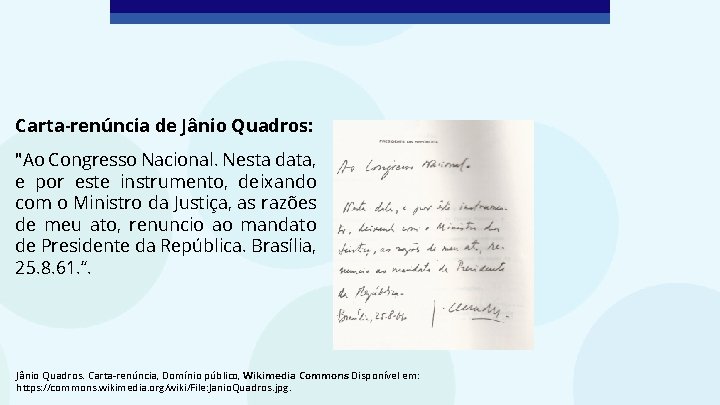 Carta-renúncia de Jânio Quadros:
"Ao Congresso Nacional. Nesta data,
e por este instrumento, deixando
com o Ministro da Justiça, as razões
de meu ato, renuncio ao mandato
de Presidente da República. Brasília,
25.8.61.“.
PRESIDENTE DA REPÚBLICA
Ao Congresso Nacional.
Nesta data, e por este instrumen-
to, deixando com o Ministro da
Justiça, as razões de meu ato, re-
nuncio ao mandato de Presidente
da República.
Brasília, 25-8-61.
Jânio Quadros. Carta-renúncia, Domínio público, Wikimedia Commons Disponível em:
https://commons.wikimedia.org/wiki/File:JanioQuadros.jpg.